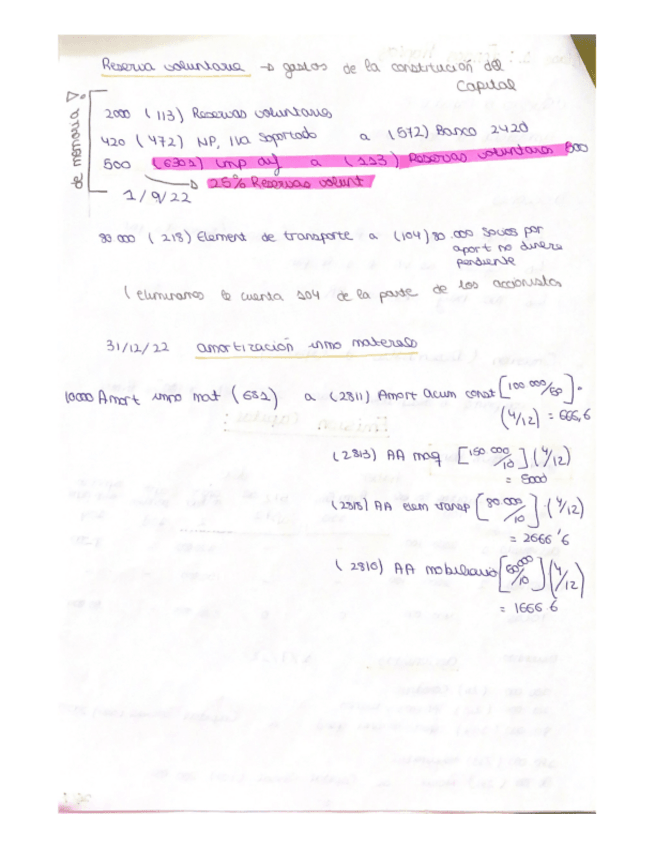 Reserva voluntaria → gastos de la constitución del
Capital
de memoria
2000 (113) Reservas voluntarias
420 (472) HP, IVA Soportado a (572) Banco 2420
500 (6301) imp dif a (113) Reservas voluntarias 500
→ 25% Reservas volunt
1/9/22
80 000 (218) Element de transporte a (104) 80.000 Socios por
aport no dinera
pendiente
(eliminamos la cuenta 104 de la parte de los accionistas
31/12/22 amortización inmo materiales
10000 Amort inmo mat (681) a (2811) Amort Acum const [100 000/50] ·
(4/12) = 666,6
(2813) AA maq [150 000/10] (4/12)
= 5000
(2818) AA elem transp [80.000/10] · (4/12)
= 2666'6
(2816) AA mobiliario [50000/10] (4/12)
= 1666 6